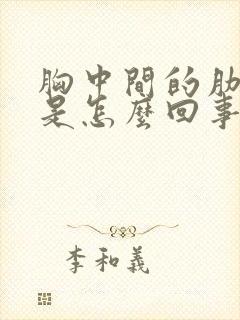 胸中間的肋
是怎麼回事
李和義